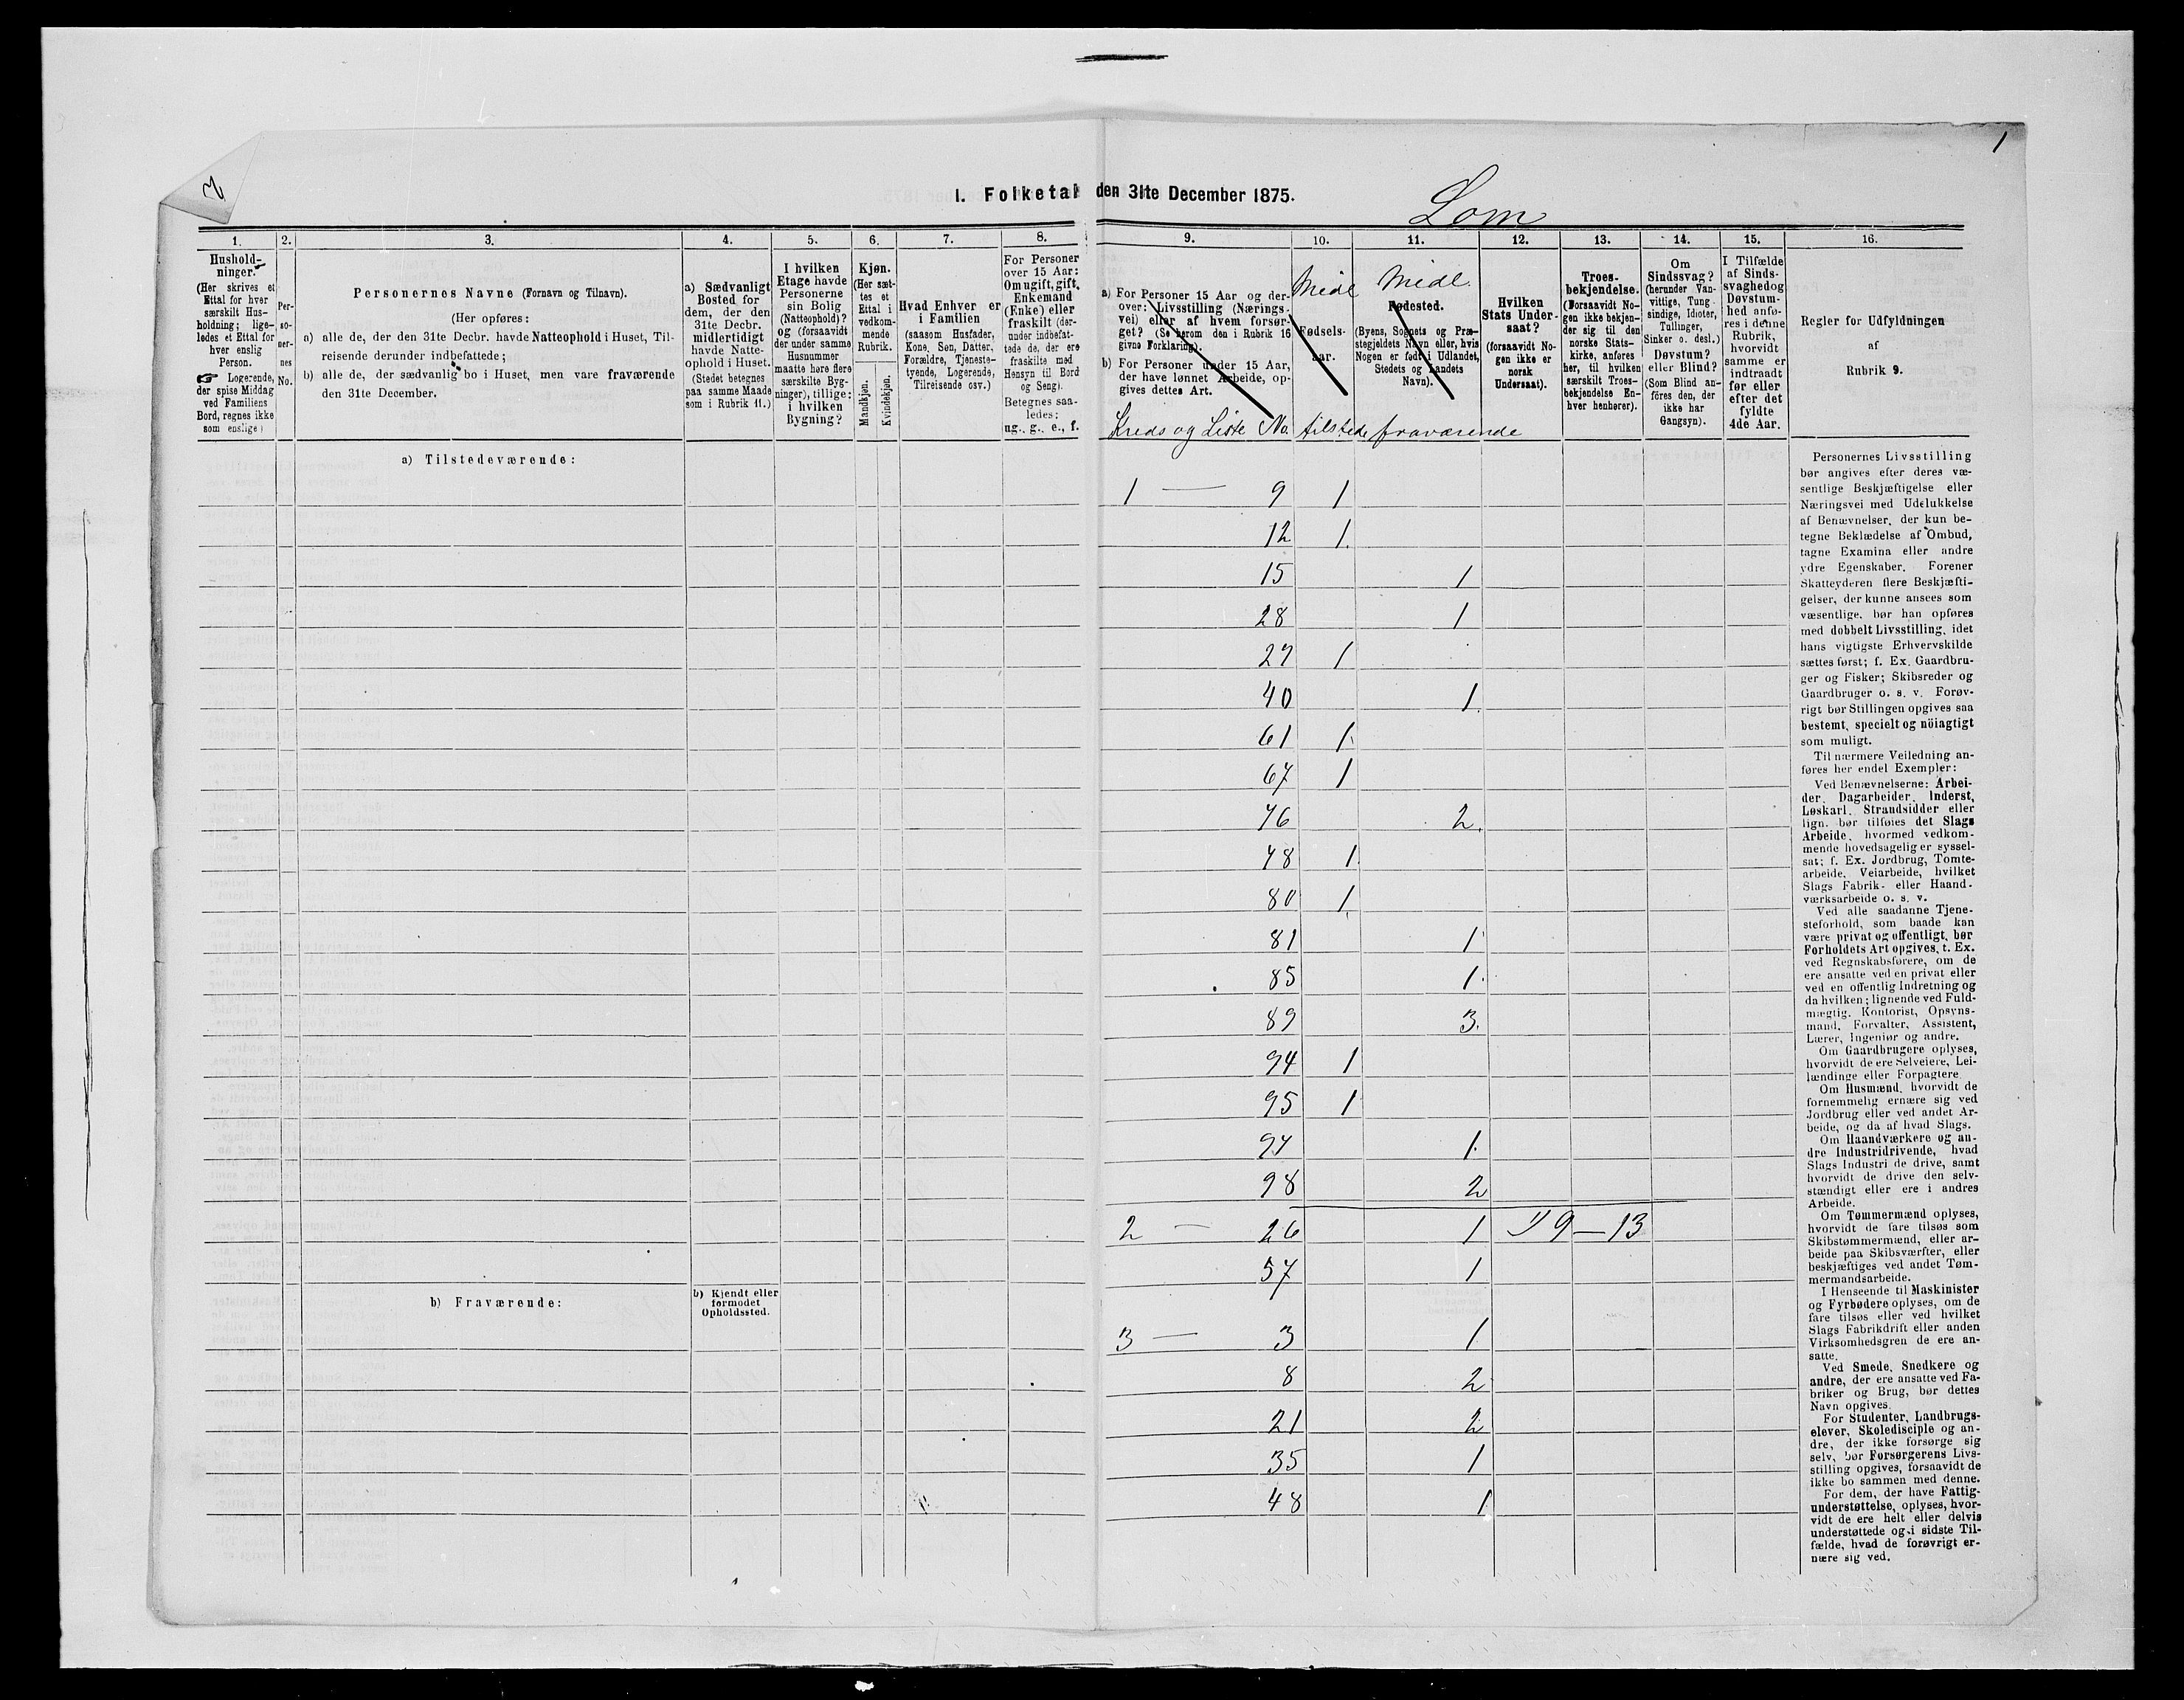 1
2
I. Folketal den 31te December 1875.
Lom
1.
2.
3.
4.
5.
6.
7.
8.
9.
10.
11.
12.
13.
14.
15.
16.
Hushold-
ninger.
(Her skrives et
Ettal for hver
særskilt Hus-
holdning; lige-
ledes et Ettal for
hver enslig
Person.
☞ Logerende,
der spise Middag
ved Familiens
Bord, regnes ikke
som enslige)
Per-
so-
ner-
nes
No.
Personernes Navne (Fornavn og Tilnavn).
(Her opføres:
a) alle de, der den 31te Decbr. havde Natteophold i Huset, Til-
reisende derunder indbefattede;
b) alle de, der sædvanlig bo i Huset, men vare fraværende
den 31te December.
a) Sædvanligt
Bosted for
dem, der den
31te Decbr.
midlertidigt
havde Natte-
ophold i Huset.
(Stedet betegnes
paa samme Maade
som i Rubrik 11.)
I hvilken
Etage havde
Personerne
sin Bolig
(Natteophold)?
og (forsaavidt
der under samme
Husnummer
maatte høre flere
særskilte Byg-
ninger), tillige:
i hvilken
Bygning?
Kjøn.
(Her sæt-
tes et
Ettal i
vedkom-
mende
Rubrik.
Mandkjøn.
Kvindekjøn.
Hvad Enhver er
i Familien
(saasom Husfader,
Kone, Søn, Datter,
Forældre, Tjeneste-
tyende, Logerende,
Tilreisende osv.)
For Personer
over 15 Aar:
Om ugift, gift,
Enkemand
(Enke) eller
fraskilt (der-
under indbefat-
tede de, der ere
fraskilte med
Hensyn til Bord
og Seng).
Betegnes saa-
ledes:
ug., g., e., f.
a) For Personer 15 Aar og der-
over: Livsstilling (Nærings-
vei) eller af hvem forsør-
get? (Se herom den i Rubrik 16
givne Forklaring).
b) For Personer under 15 Aar,
der have lønnet Arbeide, op-
gives dettes Art.
Kreds og Liste No.
Midl
Fødsels-
aar.
tilstede
Midl.
Fødested.
(Byens, Sognets og Præ-
stegjeldets Navn eller, hvis
Nogen er født i Udlandet,
Stedets og Landets
Navn).
fraværende
Hvilken
Stats Under-
saat?
(forsaavidt No-
gen ikke er
norsk
Undersaat).
Troes-
bekjendelse.
(Forsaavidt No-
gen ikke bekjen-
der sig til den
norske Stats-
kirke, anføres
her, til hvilken
særskilt Troes-
bekjendelse En-
hver henhører).
Om
Sindssvag?
(herunder Van-
vittige, Tung-
sindige, Idioter,
Tullinger,
Sinker o. desl.)
Døvstum?
eller Blind?
(Som Blind an-
føres den, der
ikke har
Gangsyn).
I Tilfælde
af Sinds-
svaghed og
Døvstum-
hed anfø-
res i denne
Rubrik,
hvorvidt
samme er
indtraadt
før eller
efter det
fyldte
4de Aar.
Regler for Udfyldningen
af
Rubrik 9.
a) Tilstedeværende:
1 — 9 1
12 1.
15 1
28 1
27 1
40 1.
61 1.
67 1
76 2.
78 1.
80 1.
81 1
85 1.
89 3.
94 1
95 1
97 1.
98 2
2 — 26 1 9 — 13
57 1
b) Fraværende:
b) Kjendt eller
formodet
Opholdssted.
3 — 3 1
8 2
21 2
35 1
48 1
Personernes Livsstilling
bør angives efter deres væ-
sentlige Beskjæftigelse eller
Næringsvei med Udelukkelse
af Benævnelser, der kun be-
tegne Beklædelse af Ombud,
tagne Examina eller andre
ydre Egenskaber. Forener
Skatteyderen flere Beskjæfti-
gelser, der kunne ansees som
væsentlige, bør han opføres
med dobbelt Livsstilling, idet
hans vigtigste Erhvervskilde
sættes først; f. Ex. Gaardbru-
ger og Fisker; Skibsreder og
Gaardbruger o. s. v. Forøv-
rigt bør Stillingen opgives saa
bestemt, specielt og nöiagtigt
som muligt.
Til nærmere Veiledning an-
føres her endel Exempler:
Ved Benævnelserne: Arbei-
der, Dagarbeider, Inderst,
Løskarl, Strandsidder eller
lign. bør tilføies det Slags
Arbeide, hvormed vedkom-
mende hovedsagelig er syssel-
sat; f. Ex. Jordbrug, Tomte-
arbeide, Veiarbeide, hvilket
Slags Fabrik- eller Haand-
værksarbeide o. s. v.
Ved alle saadanne Tjene-
steforhold, som baade kan
være privat og offentligt, bør
Forholdets Art opgives, t. Ex.
ved Regnskabsførere, om de
ere ansatte ved en privat eller
ved en offentlig Indretning og
da hvilken; lignende ved Fuld-
mægtig, Kontorist, Opsyns-
mand, Forvalter, Assistent,
Lærer, Ingeniør og andre.
Om Gaardbrugere oplyses,
hvorvidt de ere Selveiere, Lei-
lændinge eller Forpagtere
Om Husmænd, hvorvidt de
fornemmelig ernære sig ved
Jordbrug eller ved andet Ar-
beide, og da af hvad Slags.
Om Haandværkere og an-
dre Industridrivende, hvad
Slags Industri de drive, samt
hvorvidt de drive den selv-
stændigt eller ere i andres
Arbeide.
Om Tømmermænd oplyses,
hvorvidt de fare tilsøs som
Skibstømmermænd, eller ar-
beide paa Skibsværfter, eller
beskjæftiges ved andet Tøm-
mermandsarbeide.
I Henseende til Maskinister
og Fyrbødere oplyses, om de
fare tilsøs eller ved hvilket
Slags Fabrikdrift eller anden
Virksomhedsgren de ere an-
satte.
Ved Smede, Snedkere og
andre, der ere ansatte ved Fa-
briker og Brug, bør dettes
Navn opgives.
For Studenter, Landbrugs-
elever, Skoledisciple og an-
dre, der ikke forsørge sig
selv, bør Forsørgerens Livs-
stilling opgives, forsaavidt de
ikke bo sammen med denne.
For dem, der have Fattig-
understøttelse, oplyses, hvor-
vidt de ere helt eller delvis
understøttede og i sidste Til-
fælde, hvad de forøvrigt er-
nære sig ved.